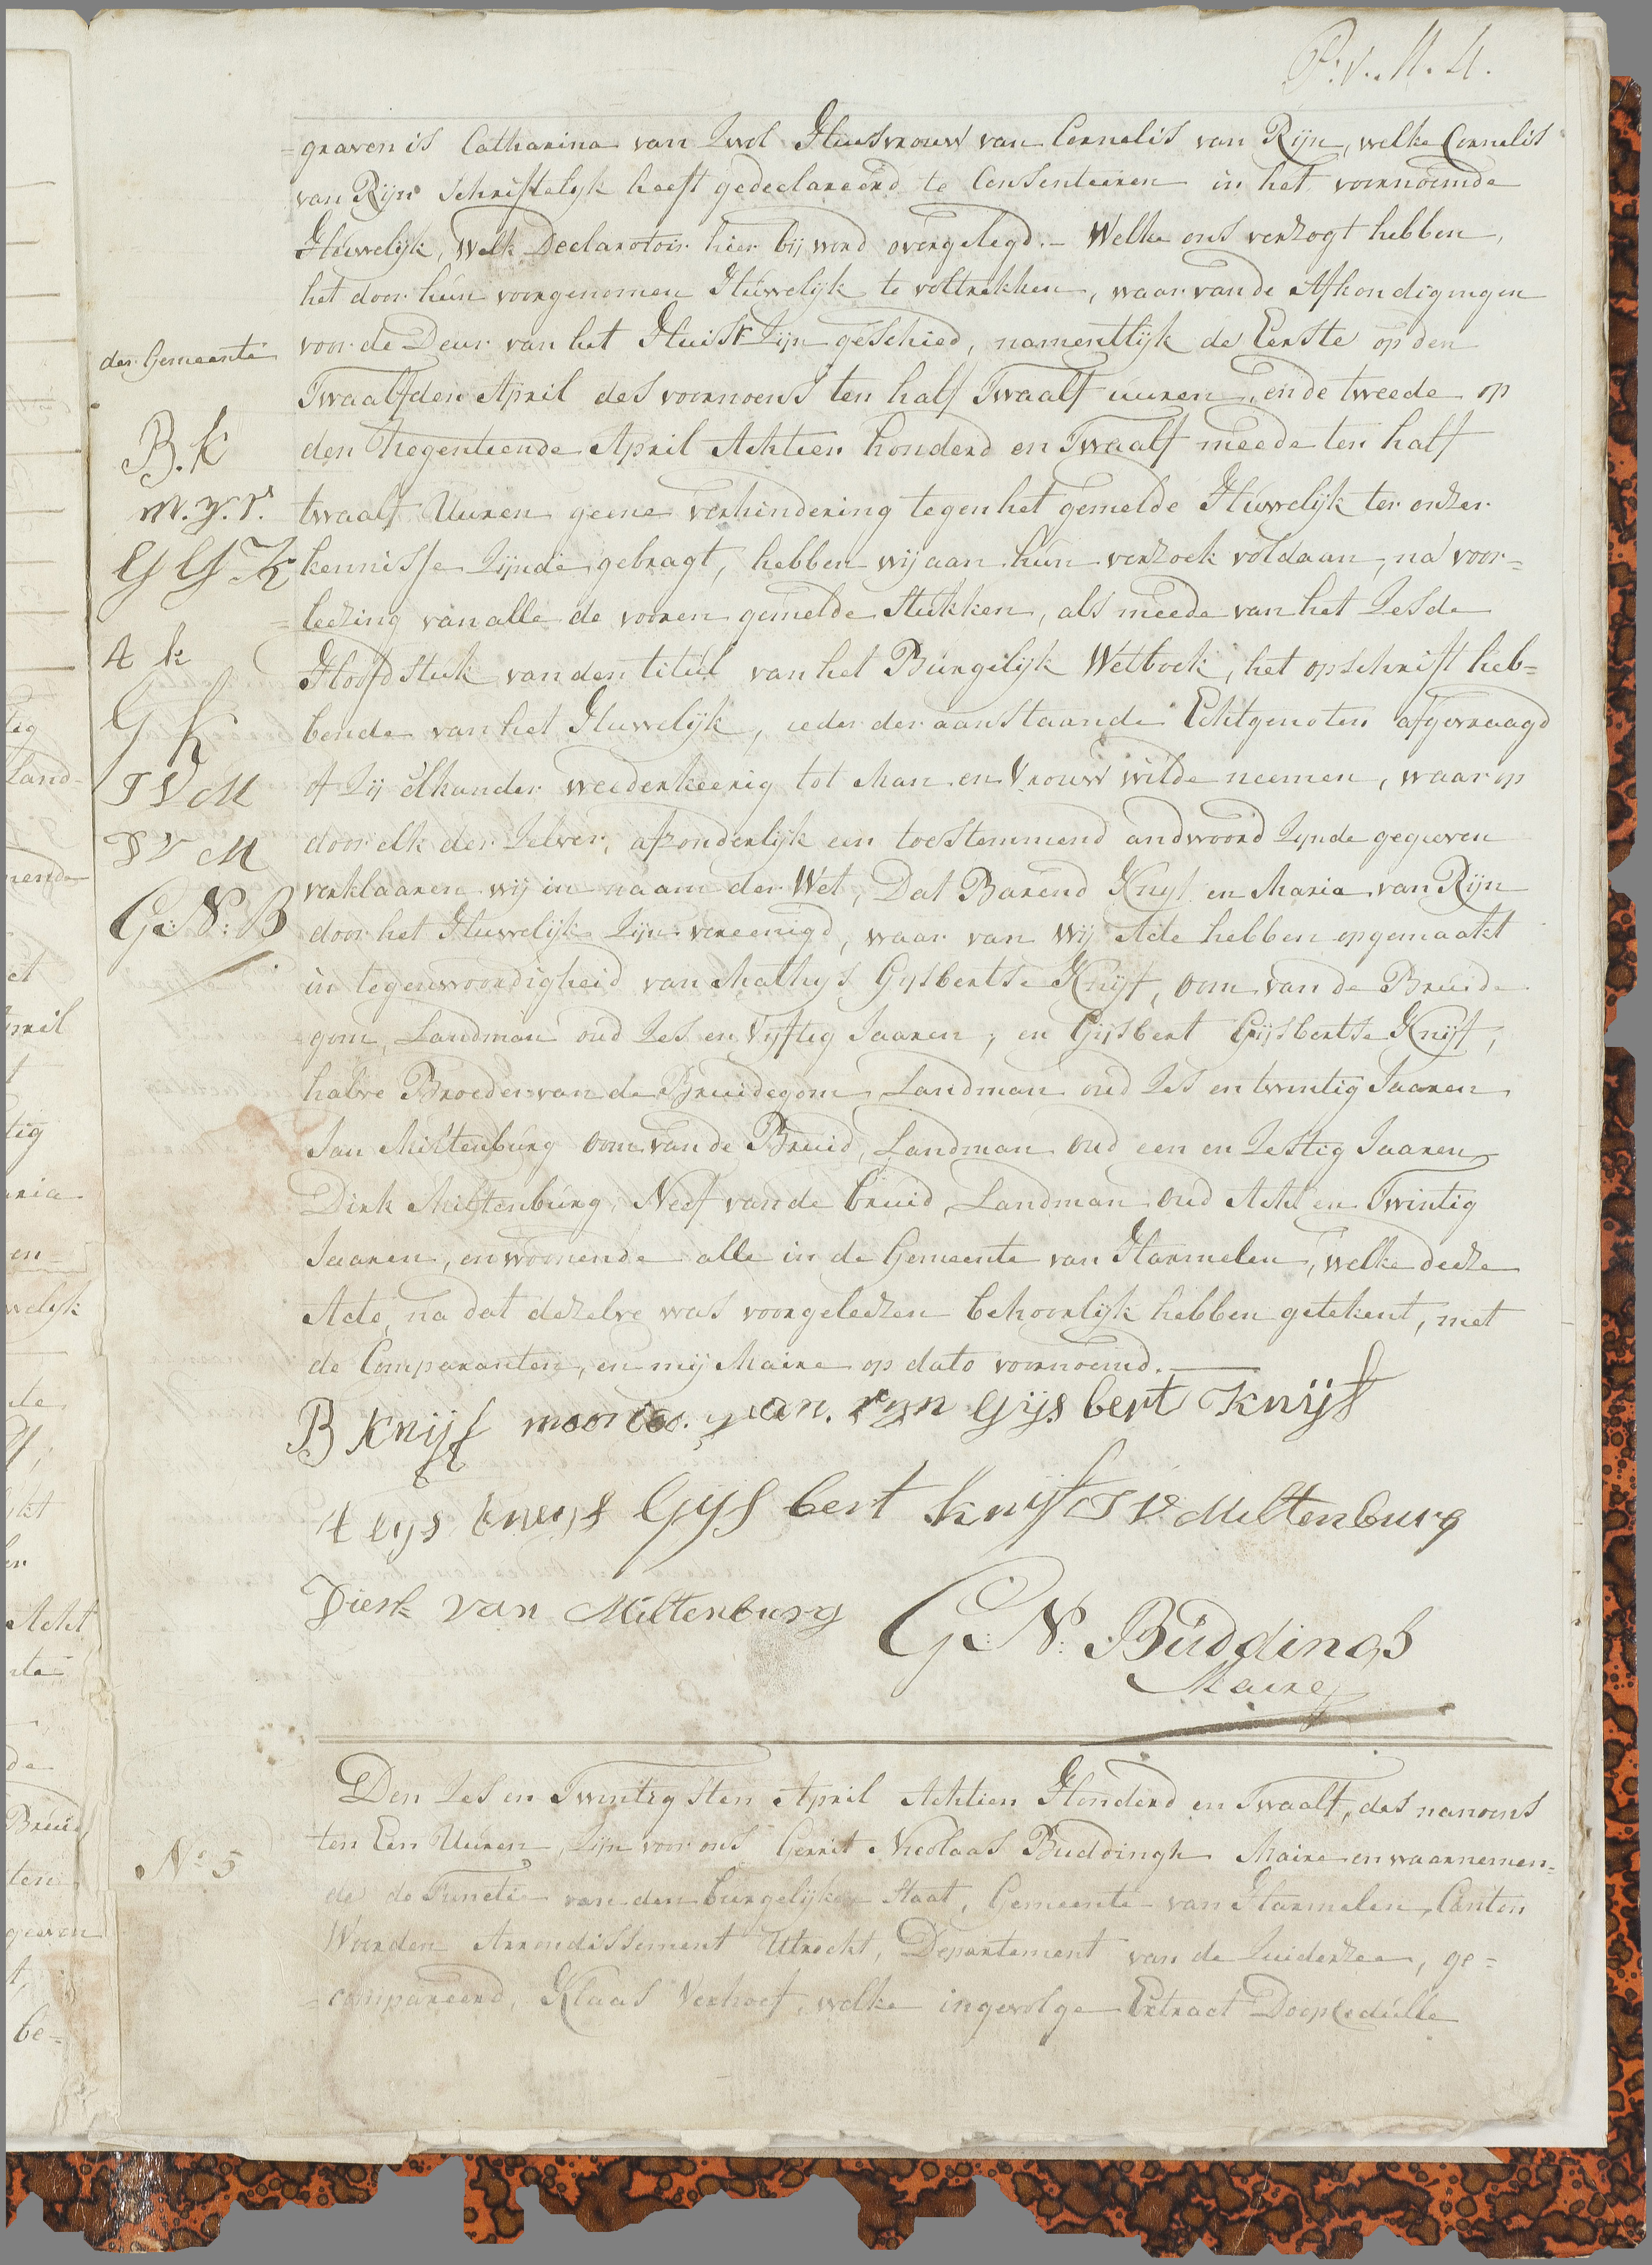 P. v. M. 4.
=gravenis Catharina van Zwol Huisvrouw van Cornelis van Rijn, welke Cornelis
van Rijn Schriftelyk heeft gedeclareerd te Consenteeren in het voornoemde
Huwelijk, Welk Declaratoir hier bij word overgelegd. — Welke ons verzogt hebben,
het door hun voorgenomen Huwelijk te voltrekken, waar van de Afkondigingen
der Gemeente
voor de Deur van het Huis Zijn geschied, namentlijk de Eerste op den
Twaalfden April des voornoens ten half Twaalf uuren, en de tweede op
den Negentiende April Achtien honderd en Twaalf meede ten half
twaalf Uuren geene verhindering tegen het gemelde Huwelijk ter onzer
kennisse Zijnde gebragt, hebben wij aan hun verzoek voldaan, na voor=
=leezing van alle de vooren gemelde Stukken, als meede van het Zesde
Hoofdstuk van den titul van het Burgelijk Wetboek, het opschrift heb=
bende van het Huwelijk, ieder der aanstaande Echtgenoten afgevraagd
of Zij elkander weederkeerig tot Man en Vrouw wilde neemen, waar op
door elk der Zelver, afzonderlijk een toestemmend andwoord Zynde gegeeven
verklaaren wij in naam der Wet, Dat Barend Knyf en Maria van Rijn
door het Huwelijk Zijn vereenigd, waar van Wij Acte hebben opgemaakt
in tegenwoordigheid van Mathys Gysbertse Knijf, Oom van de Bruide
gom, Landman oud Zes en Vyftig Jaaren, en Gijsbert Gijsbertse Knijf,
halve Broeder van de Bruidegom Landman oud Zes en twintig Jaaren
Jan Miltenburg oom van de Bruid, Landman oud een en Zestig Jaaren
Dirk Miltenburg, Neef van de bruid, Landman oud Acht en Twintig
Jaaren, en woonende alle in de Gemeente van Harmelen, welke deeze
Acte, na dat dezelve was voorgeleezen behoorlijk hebben getekent, met
de Comparanten, en mij Maire op dato voornoemd. —
B.K
m.v.r.
G G K
t k
G K
J V M
D V M
G: N: B
B Knijf maria van ryn Gijsbert Knijf
t eys kneyf Gysbert Knijf J V Miltenburg
Dierk van Miltenburg G: N: Buddingh
Maire
Den Zes en Twintigsten April Achtien Honderd en Twaalf, des nanoens
No 5
ten Een Uuren, Zijn voor ons Gerrit Nicolaas Buddingh Maire en waarnemen=
de de Functie van den burgelijken Staat, Gemeente van Harmelen, Canton
Woerden Arrondissement Utrecht, Departement van de Zuiderzee, ge=
=compareerd, Klaas Verhoef, welke ingevolge Extract Doopcedulle